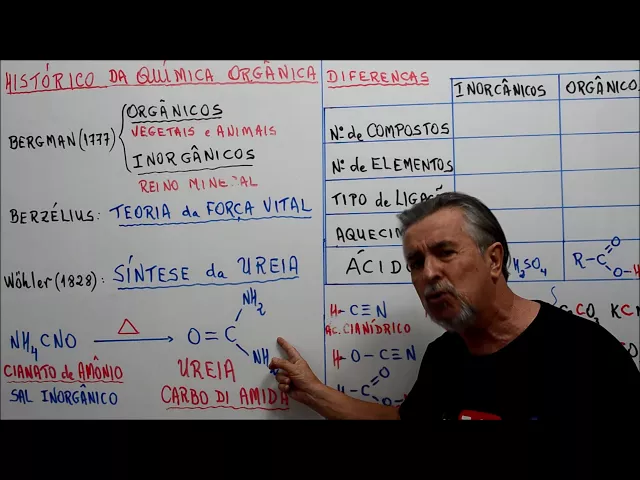 HISTÓRICO DA QUÍMICA ORGÂNICA
BERGMAN (1777)
ORGÂNICOS
VEGETAIS e ANIMAIS
INORGÂNICOS
REINO MINERAL
BERZÉLIUS: TEORIA da FORÇA VITAL
Wöhler (1828): SÍNTESE da UREIA
NH4CNO → O=C
NH2
NH2
CIANATO de AMÔNIO
SAL INORGÂNICO
UREIA
CARBO DI AMIDA
DIFERENÇAS
INORGÂNICOS ORGÂNICOS
Nº de COMPOSTOS
Nº de ELEMENTOS
TIPO de LIGAÇÃ
AQUECIM
ÁCIDO
H2SO4
R-C
O
O-H
H-C≡N
AC. CIANÍDRICO
H-O-C≡N
H-C
O
KC